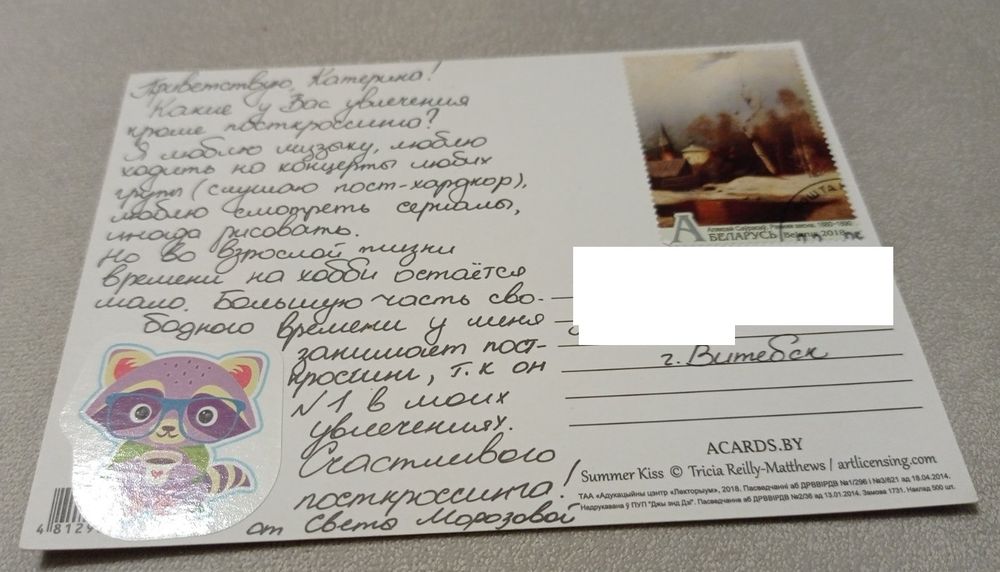 Приветствую, Катерина!
Какие у Вас увлечения
кроме посткроссинга?
Я люблю музыку, люблю
ходить на концерты любих
групп (слушаю пост-хардкор),
люблю смотреть сериалы,
иногда рисовать.
Но во взрослой жизни
времени на хобби остаётся
мало. Большую часть сво-
бодного времени у меня
занимает пост-
кроссинг, т.к он
№1 в моих
увлечениях.
Счастливого
посткроссинга!
от Светы Морозовой
4 8129
ШТА
А
Аляксей Саўрасаў. Ранняя вясна. 1880–1890
БЕЛАРУСЬ Belarus 2018
г. Витебск
ACARDS.BY
Summer Kiss © Tricia Reilly-Matthews / artlicensing.com
ТАА «Адукацыйны цэнтр «Лекторыум», 2018. Пасведчанні аб ДРВВІРДВ №1/296 і №3/621 ад 18.04.2014.
Недрукавана ў ПУП "Джы энд Дзі". Пасведчанне аб ДРВВІРДВ №2/36 ад 13.01.2014. Замова 1731. Наклад 500 шт.